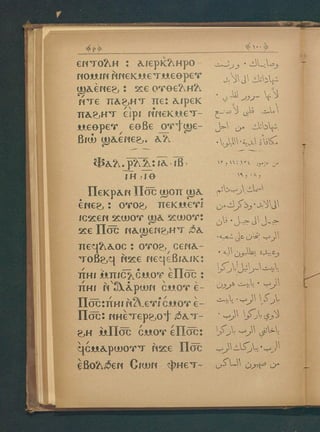 ﴾ ⲣ ﴿ ﴾ ١٠٠ ﴿
ⲉⲛⲧⲟⲗⲏ : ⲁⲓⲉⲣⲕ̀ⲗⲏⲣⲟ
ⲛⲟⲙⲓⲛ ⲛ̀ⲛⲉⲕⲙⲉⲧⲙⲉⲑⲣⲉⲩ
ϣⲁⲉⲛⲉϩ : ϫⲉ ⲟⲩⲑⲉⲗⲏⲗ
ⲛ̀ⲧⲉ ⲡⲁϩⲏⲧ ⲡⲉ: ⲁⲓⲣⲉⲕ
ⲡⲁϩⲏⲧ ⲉ̀ⲓⲣⲓ ⲛ̀ⲛⲉⲕⲙⲉⲧ-
ⲙⲉⲑⲣⲉⲩ ⲉⲑⲃⲉ ⲟⲩϯϣⲉ-
ⲃⲓⲱ̀ ϣⲁⲉⲛⲉϩ. ⲁⲗ
Ⲯⲁⲗ. ⲣ̅ⲗ̅ⲇ̅: ⲓⲁ ⲓⲃ
ⲓⲏ ⲓⲑ
Ⲡⲉⲕⲣⲁⲛ Ⲡⲟ̅ⲥ̅ ϣⲟⲡ ϣⲁ
ⲉ̀ⲛⲉϩ : ⲟⲩⲟϩ, ⲡⲉⲕⲙⲉⲩⲓ̀
ⲓⲥϫⲉⲛ ϫⲱⲟⲩ ϣⲁ ϫⲱⲟⲩ:
ϫⲉ Ⲡⲟ̅ⲥ̅ ⲛⲁϣⲉⲛϩⲏⲧ ϧⲁ
ⲡⲉϥⲗⲁⲟⲥ : ⲟⲩⲟϩ, ⲥⲉⲛⲁ-
ⲧⲟⲃϩϥ ⲛ̀ϫⲉ ⲛⲉϥⲉⲃⲓⲁⲓⲕ:
ⲡ̀ⲏⲓ ⲙ̀ⲡⲓⲥ̅ⲗ̅ ⲥ̀ⲙⲟⲩ ⲉ̀Ⲡⲟ̅ⲥ̅ :
ⲡ̀ⲏⲓ ⲛ̀Ⲁⲁ̀ⲣⲱⲛ ⲥ̀ⲙⲟⲩ ⲉ̀-
Ⲡⲟ̅ⲥ̅: ⲡ̀ⲏⲓ ⲛ̀Ⲗⲉⲩⲓ̀ ⲥ̀ⲙⲟⲩ ⲉ̀-
Ⲡⲟ̅ⲥ̅: ⲛⲏⲉ̀ⲧⲉⲣϩⲟϯ ϧⲁⲧ-
ϩⲏ ⲙ̀Ⲡⲟ̅ⲥ̅ ⲥ̀ⲙⲟⲩ ⲉ̀Ⲡⲟ̅ⲥ̅:
ϥ̀ⲥⲙⲁⲣⲱⲟⲩⲧ ⲛ̀ϫⲉ Ⲡⲟ̅ⲥ̅
ⲉ̀ⲃⲟⲗϧⲉⲛ Ⲥⲓⲱⲛ ⲫⲏⲉⲧ-
وصاياك ٠ ورثت
شهاداتك الى الابد
لأنها سرور لقلبي ٠
أملت قلبي لاصنع
شهاداتك من اجل
مكافأة أبدية ٠ الليلويا ٠
اسمك يارب دائم
الى الابد ٠ وذكرك من
جيل الى جيل ٠ فان
الرب يتحنن على شعبه ٠
وعبيده يطلبون اليه ٠
يابيت اسرائيل باركوا
الرب ٠ يابيت هرون
باركوا الرب ٠ يابيت
لاوي باركوا الرب ٠
ياخائفي الرب باركوا
الرب ٠ يبارك الرب
من صهيون الساكن